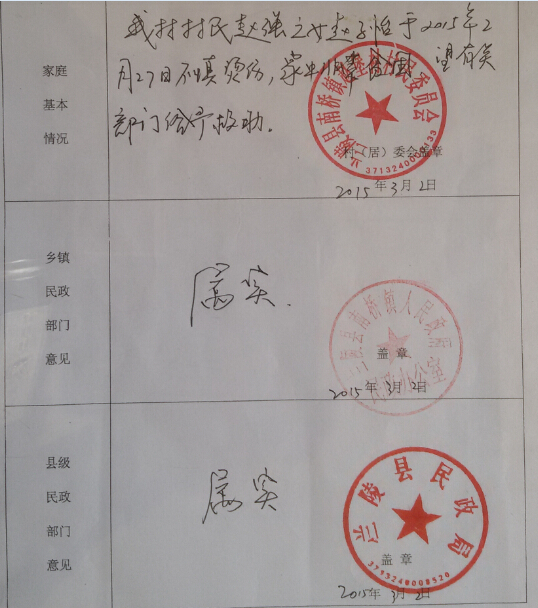 家庭
基本
情况
我村村民赵强之女赵子怡于2015年2
月27日不慎烫伤，家中非常困难 望有关
部门给予救助。
兰陵县南桥镇 村民委员会
3713240008133
村（居）委会盖章
2015年3月2日
乡镇
民政
部门
意见
属实.
兰陵县南桥镇人民政府
民政办公室
盖 章
2015年3月2日
县级
民政
部门
意见
属实
兰陵县民政局
3713240008520
盖 章
2015年3月2日